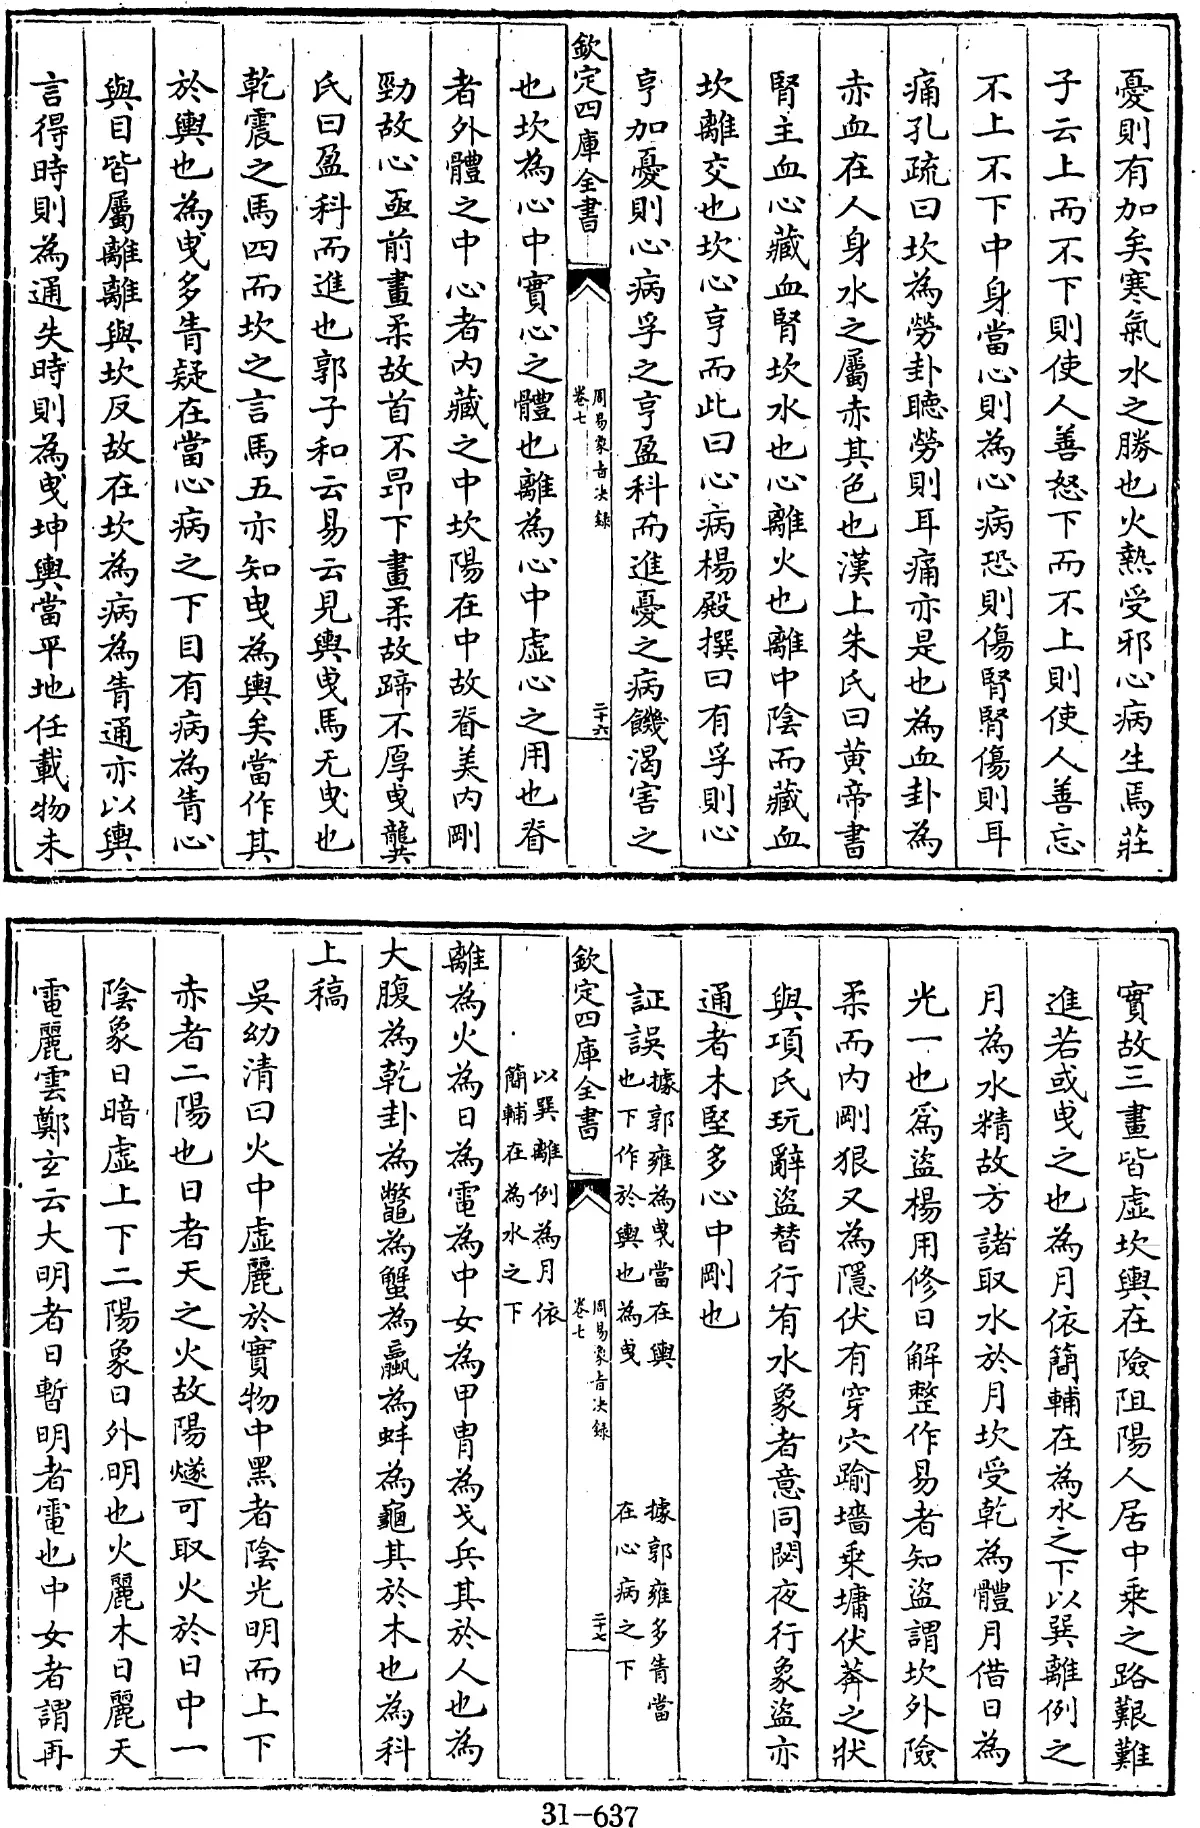 憂則有加矣寒氣水之勝也火熱受邪心病生焉莊
子云上而不下則使人善怒下而不上則使人善忘
不上不下中身當心則為心病恐則傷腎腎傷則耳
痛孔疏曰坎為勞卦聽勞則耳痛亦是也為血卦為
赤血在人身水之屬赤其色也漢上朱氏曰黄帝書
腎主血心藏血腎坎水也心離火也離中陰而藏血
坎離交也坎心亨而此曰心病楊殿撰曰有孚則心
亨加憂則心病孚之亨盈科而進憂之病饑渴害之
欽定四庫全書
周易象旨决録
卷七
二十六
也坎為心中實心之體也離為心中虛心之用也脊
者外體之中心者内藏之中坎陽在中故脊美内剛
勁故心亟前畫柔故首不昻下畫柔故蹄不厚曳龔
氏曰盈科而進也郭子和云易云見輿曳馬无曳也
乾震之馬四而坎之言馬五亦知曳為輿矣當作其
於輿也為曳多眚疑在當心病之下目有病為眚心
與目皆屬離離與坎反故在坎為病為眚通亦以輿
言得時則為通失時則為曳坤輿當平地任載物未
實故三畫皆虛坎輿在險阻陽人居中乘之路艱難
進若或曳之也為月依簡輔在為水之下以巽離例之
月為水精故方諸取水於月坎受乾為體月借日為
光一也爲盜楊用修曰解整作易者知盜謂坎外險
柔而内剛狠又為隱伏有穿穴踰墻乘墉伏莽之狀
與項氏玩辭盜替行有水象者意同閔夜行象盜亦
通者木堅多心中剛也
証誤據郭雍為曳當在輿
也下作於輿也為曳
據郭雍多眚當
在心病之下
欽定四庫全書
周易象旨决録
卷七
二十七
以巽離例為月依
簡輔在為水之下
離為火為日為電為中女為甲胄為戈兵其於人也為
大腹為乾卦為鼈為蟹為蠃為蚌為龜其於木也為科
上稿
吳幼清曰火中虛麗於實物中黑者陰光明而上下
赤者二陽也日者天之火故陽燧可取火於日中一
陰象日暗虛上下二陽象日外明也火麗木日麗天
電麗雲鄭玄云大明者日暫明者電也中女者謂再
31-637